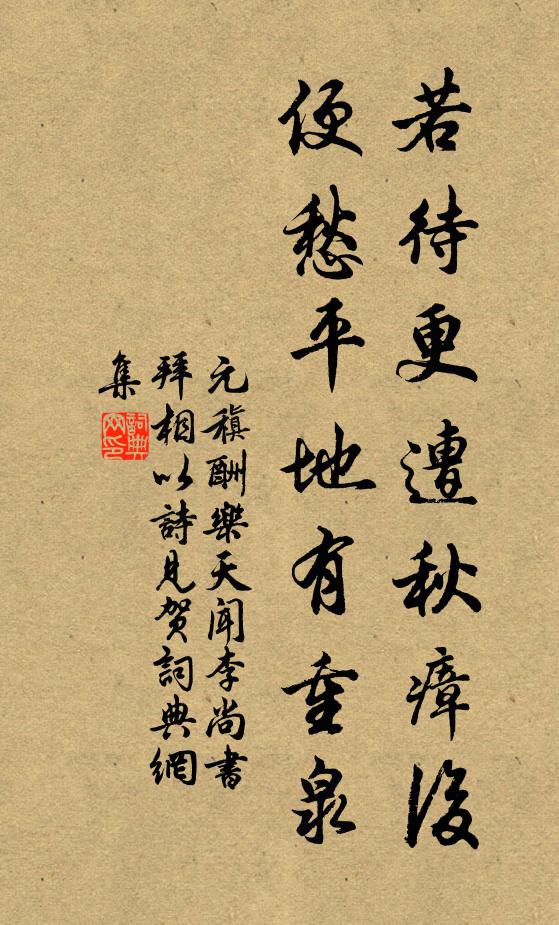 若待更遭秋瘴後
便愁平地有重泉
元稹酬樂天聞李尚書
拜相以詩見贺詞典網
集
詞典
网印